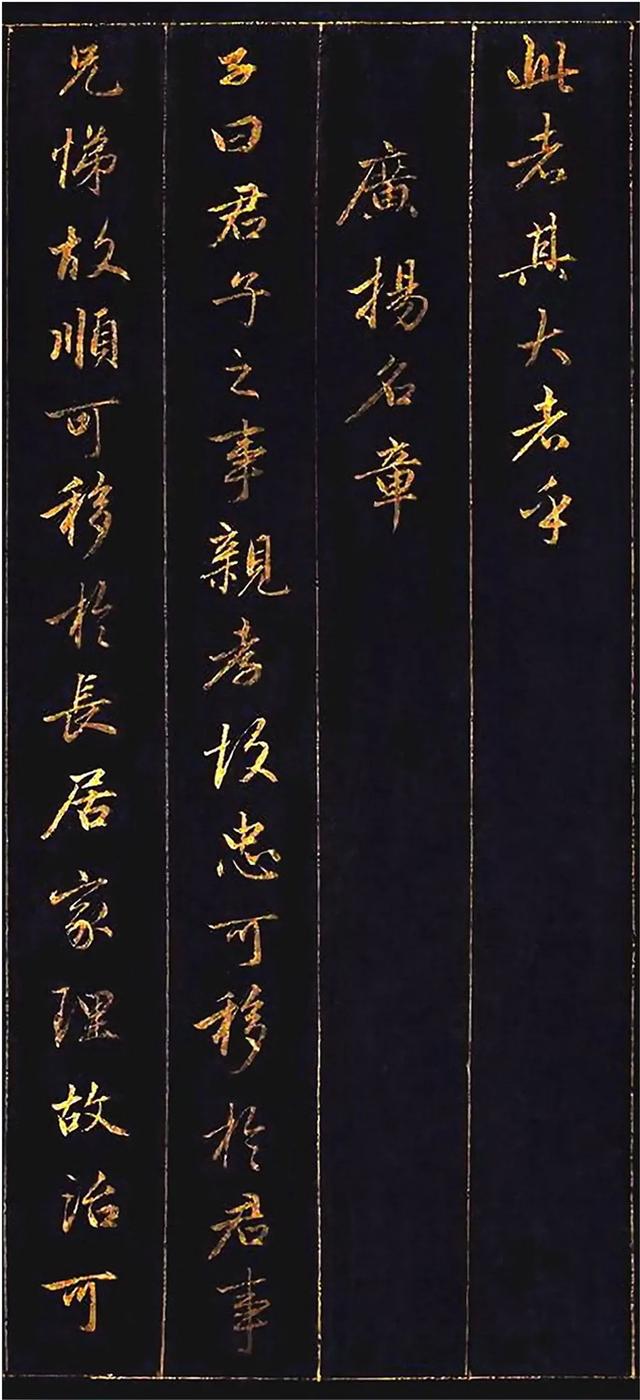 此者其大者乎
廣揚名章
子曰君子之事親孝故忠可移於君事
兄悌故順可移於長居家理故治可